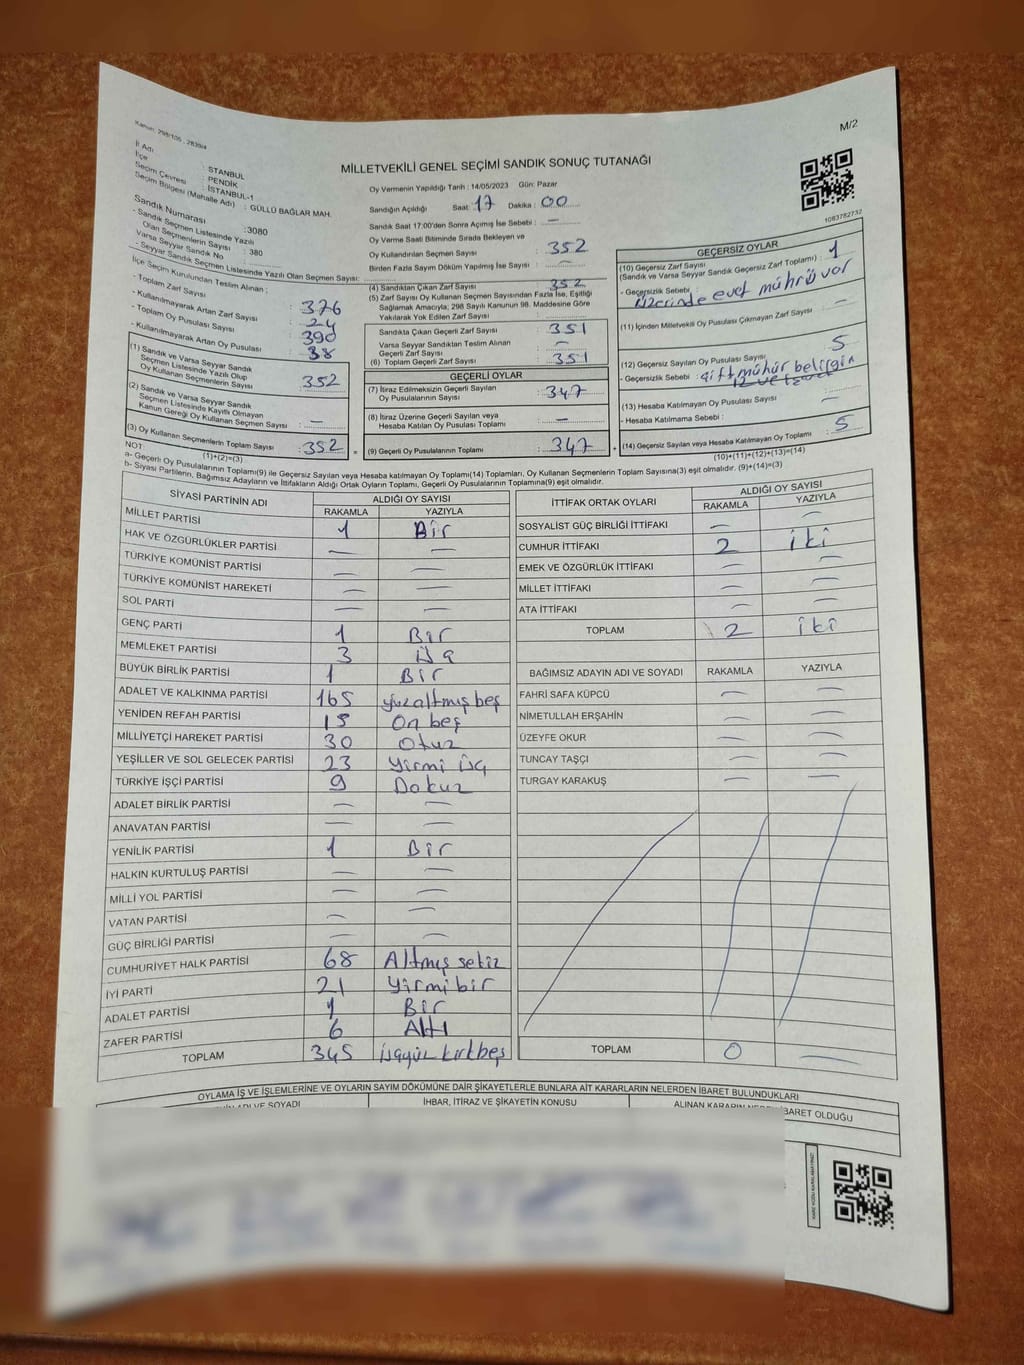 Kanun: 298/105 , 2839/4
M/2
MİLLETVEKİLİ GENEL SEÇİMİ SANDIK SONUÇ TUTANAĞI
İl Adı : İSTANBUL
İlçe : PENDİK
Seçim Çevresi : İSTANBUL-1
Seçim Bölgesi (Mahalle Adı) : GÜLLÜ BAĞLAR MAH.
Sandık Numarası :3080
- Sandık Seçmen Listesinde Yazılı
Olan Seçmenlerin Sayısı : 380
Varsa Seyyar Sandık No :
- Seyyar Sandık Seçmen Listesinde Yazılı Olan Seçmen Sayısı:
İlçe Seçim Kurulundan Teslim Alınan ;
- Toplam Zarf Sayısı : 376
- Kullanılmayarak Artan Zarf Sayısı : 24
- Toplam Oy Pusulası Sayısı : 390
- Kullanılmayarak Artan Oy Pusulası : 38
(1) Sandık ve Varsa Seyyar Sandık
Seçmen Listesinde Yazılı Olup
Oy Kullanan Seçmenlerin Sayısı : 352
(2) Sandık ve Varsa Seyyar Sandık
Seçmen Listesinde Kayıtlı Olmayan
Kanun Gereği Oy Kullanan Seçmen Sayısı : —
(3) Oy Kullanan Seçmenlerin Toplam Sayısı : 352
(1)+(2)=(3)
Oy Vermenin Yapıldığı Tarih : 14/05/2023 Gün: Pazar
Sandığın Açıldığı Saat: 17 Dakika : 00
Sandık Saat 17:00'den Sonra Açılmış İse Sebebi : —
Oy Verme Saati Bitiminde Sırada Bekleyen ve
Oy Kullandırılan Seçmen Sayısı : 352
Birden Fazla Sayım Döküm Yapılmış İse Sayısı : —
(4) Sandıktan Çıkan Zarf Sayısı : 352
(5) Zarf Sayısı Oy Kullanan Seçmen Sayısından Fazla İse, Eşitliği
Sağlamak Amacıyla; 298 Sayılı Kanunun 98. Maddesine Göre
Yakılarak Yok Edilen Zarf Sayısı :
Sandıkta Çıkan Geçerli Zarf Sayısı : 351
Varsa Seyyar Sandıktan Teslim Alınan
Geçerli Zarf Sayısı : —
(6) Toplam Geçerli Zarf Sayısı : 351
GEÇERLİ OYLAR
(7) İtiraz Edilmeksizin Geçerli Sayılan
Oy Pusulalarının Sayısı : 347
(8) İtiraz Üzerine Geçerli Sayılan veya
Hesaba Katılan Oy Pusulası Toplamı : —
= (9) Geçerli Oy Pusulalarının Toplamı : 347 +
1083782732
GEÇERSİZ OYLAR
(10) Geçersiz Zarf Sayısı
(Sandık ve Varsa Seyyar Sandık Geçersiz Zarf Toplamı) : 1
- Geçersizlik Sebebi : Üzerinde evet mührü var
(11) İçinden Milletvekili Oy Pusulası Çıkmayan Zarf Sayısı : —
(12) Geçersiz Sayılan Oy Pusulası Sayısı : 5
- Geçersizlik Sebebi : Çift mühür belirgin
(13) Hesaba Katılmayan Oy Pusulası Sayısı : —
- Hesaba Katılmama Sebebi :
(14) Geçersiz Sayılan veya Hesaba Katılmayan Oy Toplamı : 5
(10)+(11)+(12)+(13)=(14)
NOT:
a- Geçerli Oy Pusulalarının Toplamı(9) ile Geçersiz Sayılan veya Hesaba katılmayan Oy Toplamı(14) Toplamları, Oy Kullanan Seçmenlerin Toplam Sayısına(3) eşit olmalıdır. (9)+(14)=(3)
b- Siyasi Partilerin, Bağımsız Adayların ve İttifakların Aldığı Ortak Oyların Toplamı, Geçerli Oy Pusulalarının Toplamına(9) eşit olmalıdır.
SİYASİ PARTİNİN ADI ALDIĞI OY SAYISI
RAKAMLA YAZIYLA
MİLLET PARTİSİ 1 Bir
HAK VE ÖZGÜRLÜKLER PARTİSİ — —
TÜRKİYE KOMÜNİST PARTİSİ — —
TÜRKİYE KOMÜNİST HAREKETİ — —
SOL PARTİ — —
GENÇ PARTİ 1 Bir
MEMLEKET PARTİSİ 3 üç
BÜYÜK BİRLİK PARTİSİ 1 Bir
ADALET VE KALKINMA PARTİSİ 165 yüzaltmış beş
YENİDEN REFAH PARTİSİ 15 On beş
MİLLİYETÇİ HAREKET PARTİSİ 30 Otuz
YEŞİLLER VE SOL GELECEK PARTİSİ 23 Yirmi üç
TÜRKİYE İŞÇİ PARTİSİ 9 Dokuz
ADALET BİRLİK PARTİSİ — —
ANAVATAN PARTİSİ — —
YENİLİK PARTİSİ 1 Bir
HALKIN KURTULUŞ PARTİSİ — —
MİLLİ YOL PARTİSİ — —
VATAN PARTİSİ — —
GÜÇ BİRLİĞİ PARTİSİ — —
CUMHURİYET HALK PARTİSİ 68 Altmış sekiz
İYİ PARTİ 21 Yirmi bir
ADALET PARTİSİ 1 Bir
ZAFER PARTİSİ 6 Altı
TOPLAM 345 üçyüz kırkbeş
İTTİFAK ORTAK OYLARI ALDIĞI OY SAYISI
RAKAMLA YAZIYLA
SOSYALİST GÜÇ BİRLİĞİ İTTİFAKI — —
CUMHUR İTTİFAKI 2 iki
EMEK VE ÖZGÜRLÜK İTTİFAKI — —
MİLLET İTTİFAKI — —
ATA İTTİFAKI — —
TOPLAM 2 iki
BAĞIMSIZ ADAYIN ADI VE SOYADI RAKAMLA YAZIYLA
FAHRİ SAFA KÜPCÜ — —
NİMETULLAH ERŞAHİN — —
ÜZEYFE OKUR — —
TUNCAY TAŞÇI — —
TURGAY KARAKUŞ — —
TOPLAM 0 —
OYLAMA İŞ VE İŞLEMLERİNE VE OYLARIN SAYIM DÖKÜMÜNE DAİR ŞİKAYETLERLE BUNLARA AİT KARARLARIN NELERDEN İBARET BULUNDUKLARI
ADI VE SOYADI İHBAR, İTİRAZ VE ŞİKAYETİN KONUSU ALINAN KARARIN NEDEN İBARET OLDUĞU